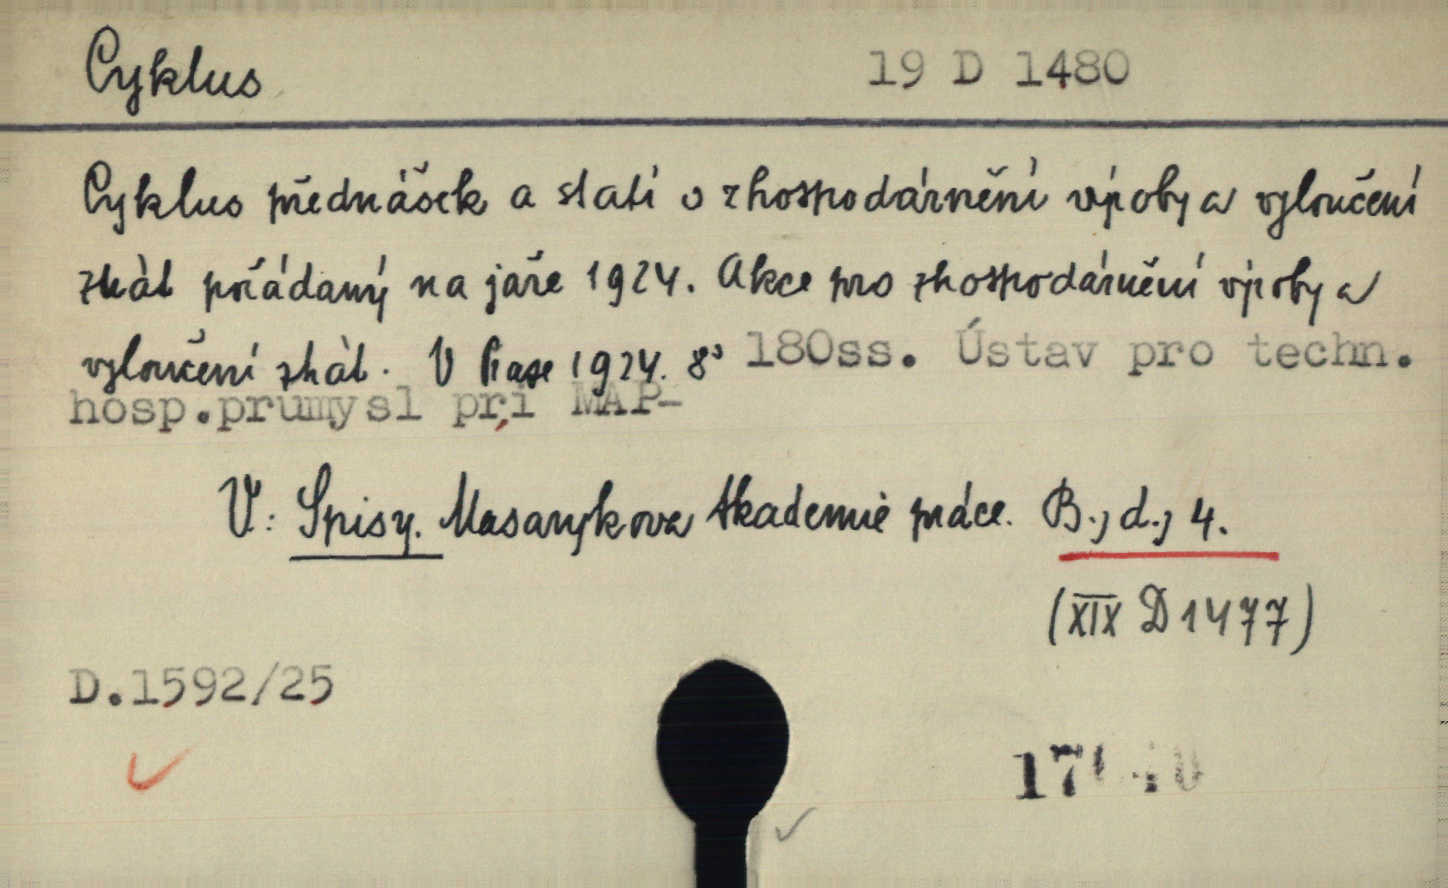 Cyklus 19 D 1480
Cyklus přednášek a statí o zhospodárnění výroby a vyloučení
ztrát pořádaný na jaře 1924. Akce pro zhospodárnění výroby a
vyloučení ztrát. V Praze 1924. 8° 180ss. Ústav pro techn.
hosp.prumysl pri MAP-
V: Spisy. Masarykova Akademie práce. B., d., 4.
(XIX D 1477)
D.1592/25